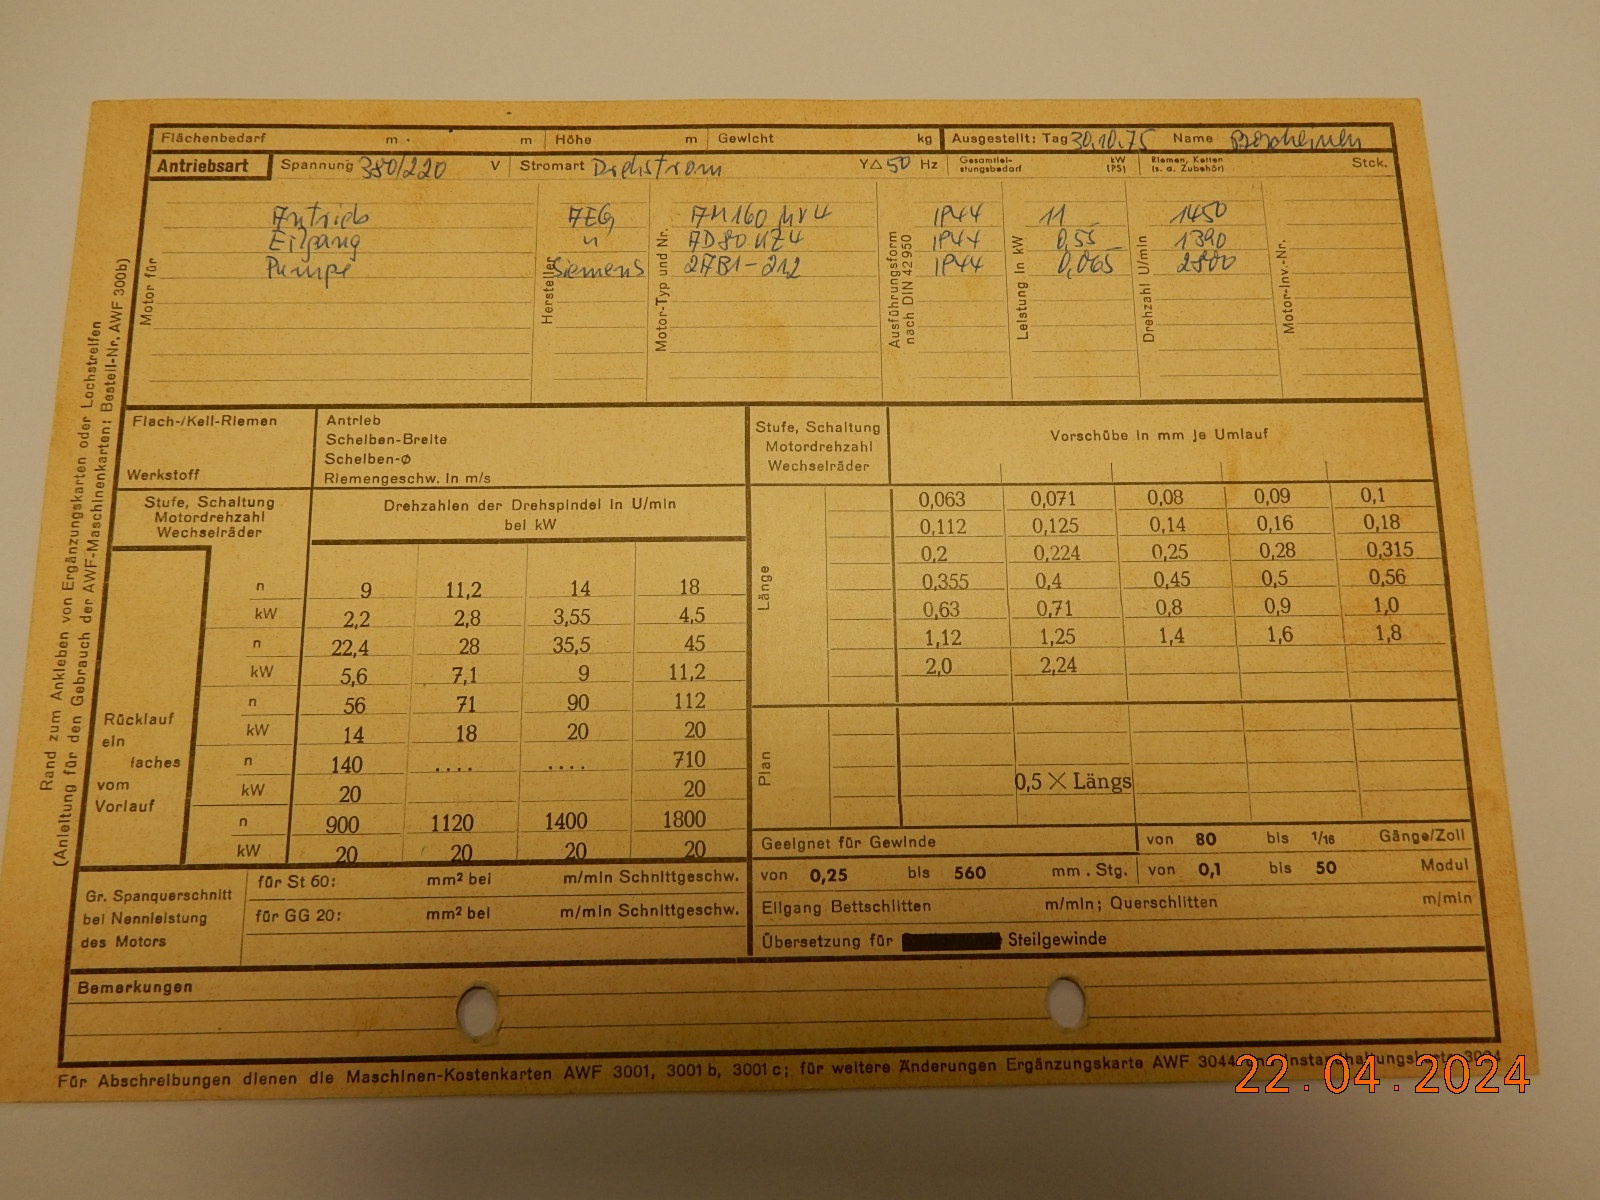 Flächenbedarf m · m Höhe m Gewicht kg Ausgestellt: Tag 30.10.75 Name
Antriebsart Spannung 380/220 V Stromart Drehstrom Y△ 50 Hz Gesamtlei-stungsbedarf kW (PS) Riemen, Ketten (s. a. Zubehör) Stck.
Motor für Hersteller Motor-Typ und Nr. Ausführungsform nach DIN 42950 Leistung in kW Drehzahl U/min Motor-Inv.-Nr.
Antrieb AEG AM160 MV4 IP44 11 1450
Eilgang " AD80 NZ4 IP44 0,55 1390
Pumpe Siemens 2AB1-212 IP44 0,065 2800
Rand zum Ankleben von Ergänzungskarten oder Lochstreifen
(Anleitung für den Gebrauch der AWF-Maschinenkarten: Bestell-Nr. AWF 300b)
Flach-/Keil-Riemen
Werkstoff
Antrieb
Scheiben-Breite
Scheiben-Ø
Riemengeschw. in m/s
Stufe, Schaltung
Motordrehzahl
Wechselräder
Drehzahlen der Drehspindel in U/min
bei kW
Rücklauf
ein
faches
vom
Vorlauf
n 9 11,2 14 18
kW 2,2 2,8 3,55 4,5
n 22,4 28 35,5 45
kW 5,6 7,1 9 11,2
n 56 71 90 112
kW 14 18 20 20
n 140 .... .... 710
kW 20 20
n 900 1120 1400 1800
kW 20 20 20 20
Gr. Spanquerschnitt
bei Nennleistung
des Motors
für St 60: mm² bei m/min Schnittgeschw.
für GG 20: mm² bei m/min Schnittgeschw.
Stufe, Schaltung
Motordrehzahl
Wechselräder
Vorschübe in mm je Umlauf
Länge
0,063 0,071 0,08 0,09 0,1
0,112 0,125 0,14 0,16 0,18
0,2 0,224 0,25 0,28 0,315
0,355 0,4 0,45 0,5 0,56
0,63 0,71 0,8 0,9 1,0
1,12 1,25 1,4 1,6 1,8
2,0 2,24
Plan
0,5 × Längs
Geeignet für Gewinde von 80 bis 1/16 Gänge/Zoll
von 0,25 bis 560 mm . Stg. von 0,1 bis 50 Modul
Eilgang Bettschlitten m/min; Querschlitten m/min
Übersetzung für Steilgewinde
Bemerkungen
Für Abschreibungen dienen die Maschinen-Kostenkarten AWF 3001, 3001 b, 3001 c; für weitere Änderungen Ergänzungskarte AWF 3044 und Instandhaltungskarte 3004
22.04.2024